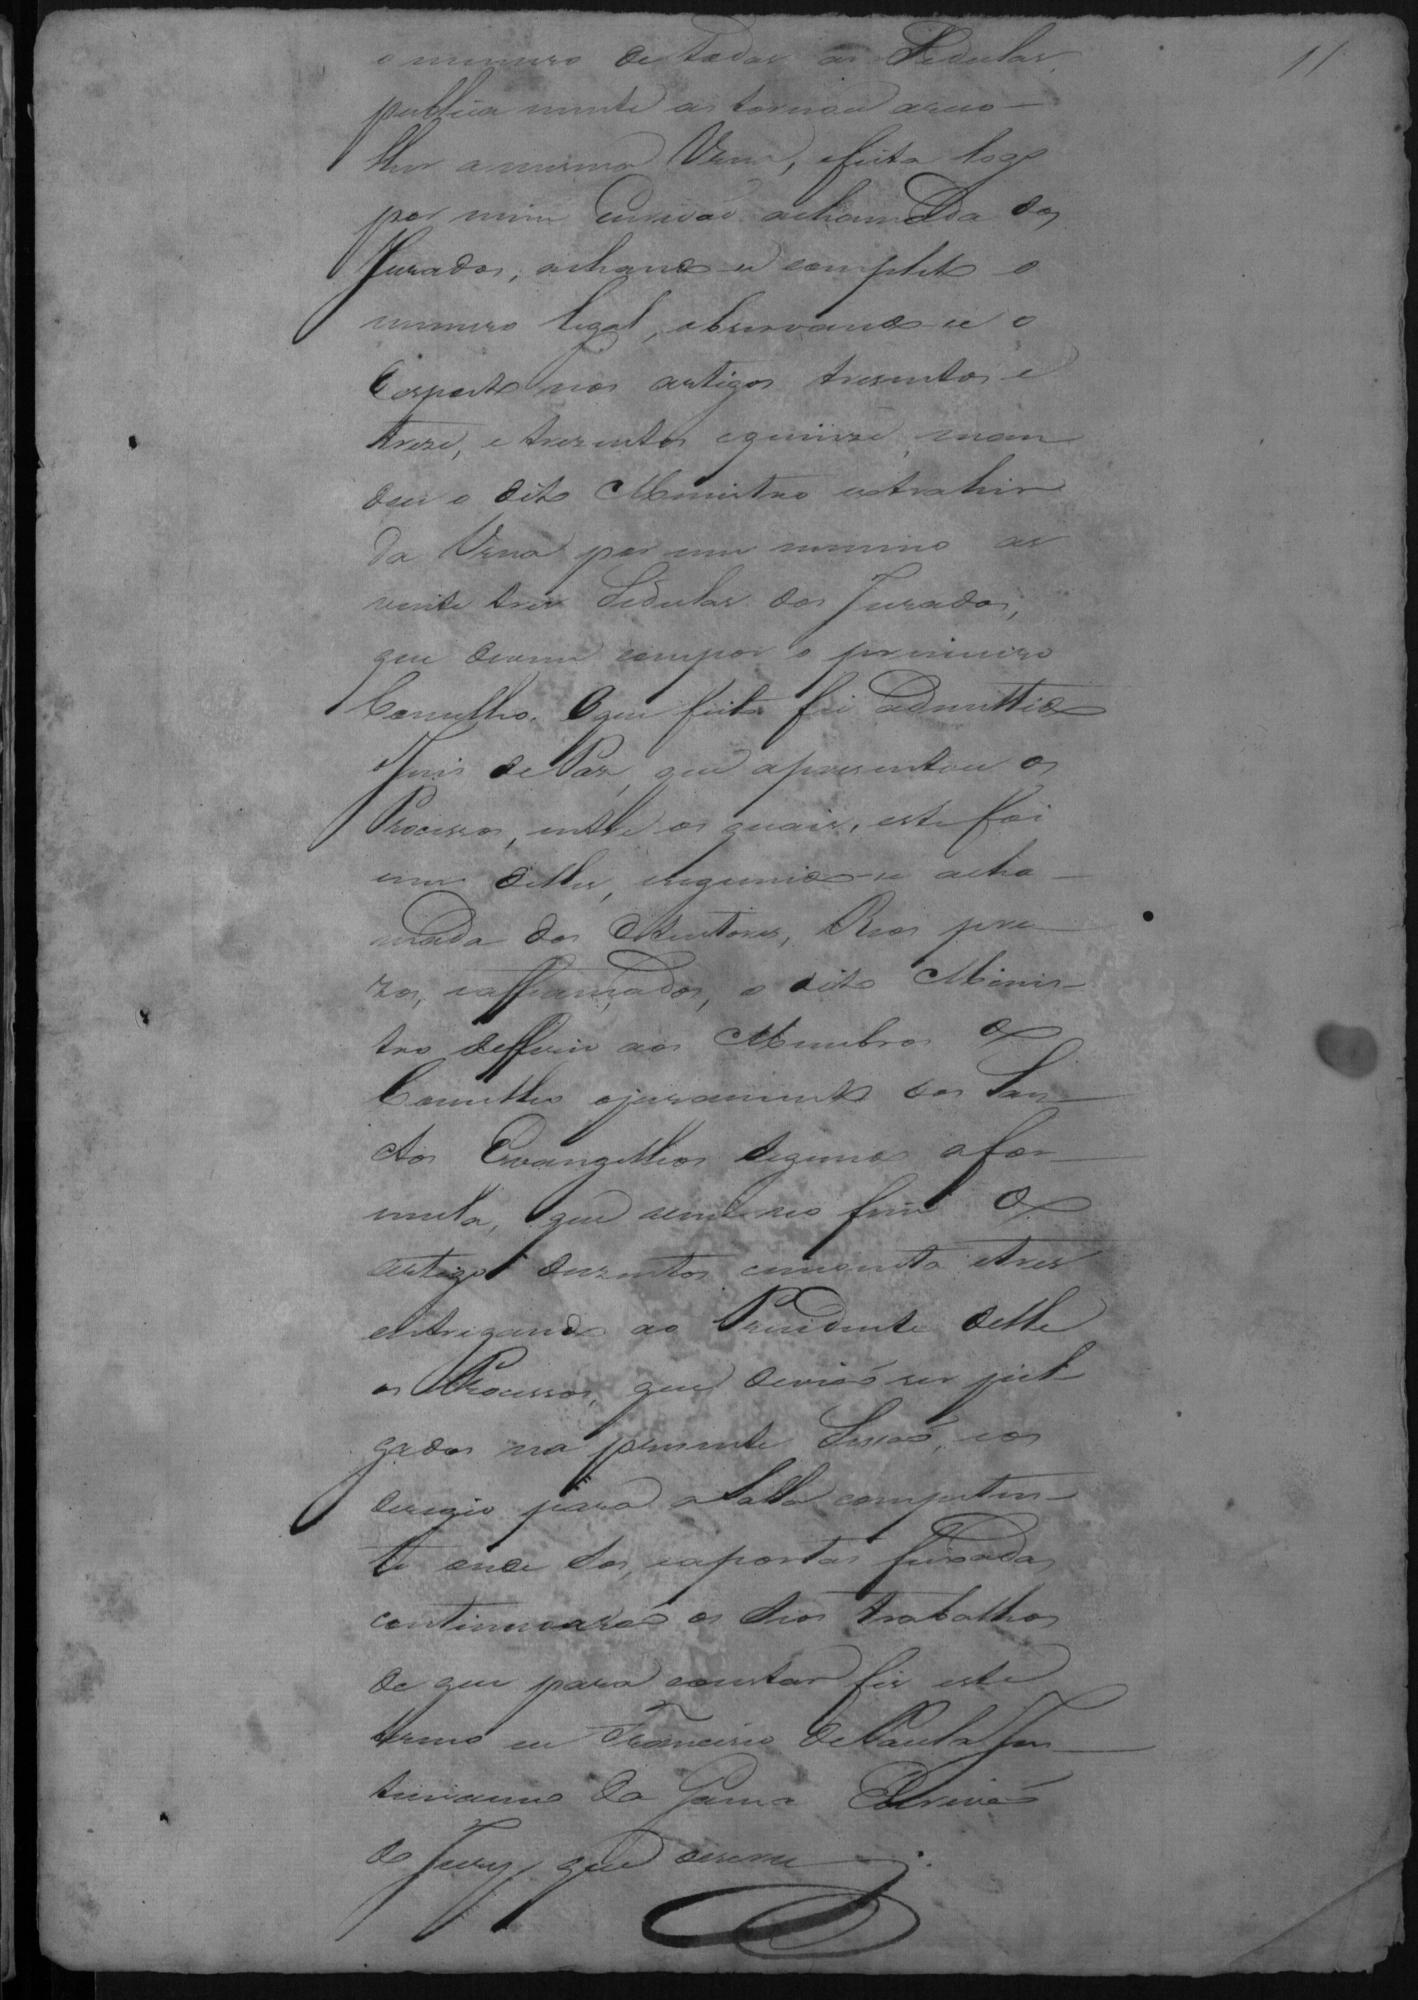 11
o numero de todas as Sedulas,
publica mente as tornou areco-
lher a mesma Urna, efeita logo
por mim Escrivaõ achamada dos
Jurados, achando-se completo o
numero legal, observando-se o
Exposto nos artigos tresentos e
treze, e trezentos equinze, man
dou o dito Ministro extrahir
da Urna por um menino as
vinte tres Sedulas dos Jurados,
que devem compor o primeiro
Conselho. Oque feito foi admittido
Juis de Paz, que apresentou os
Processos, entre os quais, este foi
um delles, eseguindo-se acha-
mada dos Autores, Reos pre-
zos, eaffiançados, o dito Minis-
tro defferio aos Membros do
Conselho ojuramento dos San-
ctos Evangelhos segundo afor-
mula, que vem no fim do
artigo duzentos cincoenta etres
entregando ao Presidente delle
os Processos, que deviaõ ser jul-
gados na presente Sessaõ, eos
deregio para aSalla competen-
te onde sos, eaportas fixadas
continuaraõ os seos trabalhos
de que para constar fiz este
termo eu Francisco de Paula Jus-
tiniano da Gama Escrivaõ
do Jury, que escrevi